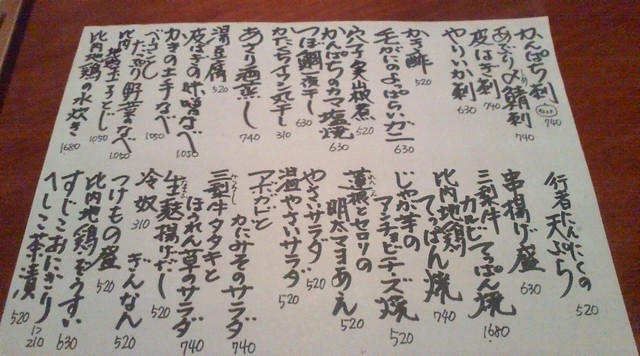 かんぱち刺 740
あぶり〆鯖刺 740
皮はぎ刺 740
やりいか刺 630
かき酢 520
毛がにのよっぱらいガニ 630
穴子と炙山椒煮 520
かんぱちのカマ塩焼 630
つぼ鯛一夜干し 630
かたちイワシ丸干し 310
あさり酒蒸し 740
湯豆腐 520
皮はぎの味噌なべ 1050
かきの土手なべ 1050
べーこんとたっぷり野菜なべ 1050
比内地鶏玉子とじ 1050
比内地鶏の水炊き 1680
行者にんにくの天ぷら 520
串揚げ盛 630
三梨牛カルビてっぱん焼 1680
比内地鶏てっぱん焼 740
じゃが芋のアンチョビチーズ焼 520
蓮根とセロリの明太マヨあえ 520
やさいサラダ 520
温やさいサラダ 520
アボカドとかにみそのサラダ 740
三梨牛タタキとほうれん草のサラダ 740
生麩揚げだし 520
冷奴 310
ぎんなん 520
つけもの盛 520
比内地鶏ぞうすい 630
すじこおにぎり 1コ 210
へしこ茶漬 520